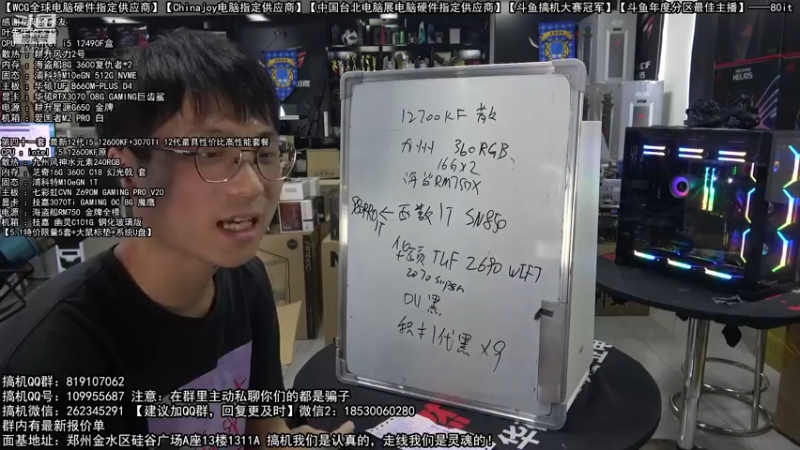 【WCG全球电脑硬件指定供应商】【Chinajoy电脑指定供应商】【中国台北电脑展电脑硬件指定供应商】【斗鱼搞机大赛冠军】【斗鱼年度分区最佳主播】——80it
CPU：intel i5 12490F盒
散热：耕升风力2号
内存：海盗船8G 3600复仇者*2
固态：浦科特M10eGN 512G NVME
主板：华硕TUF B660M-PLUS D4
显卡：华硕RTX3070 O8G GAMING巨齿鲨
电源：耕升星源G650 金牌
机箱：爱国者M2 PRO 白
第四十一套 最新12代I5 12600KF+3070TI 12代最具性价比高性能套餐
CPU：intel i5 12600KF原
散热：九州风神水元素240RGB
内存：芝奇16G 3600 C18 幻光戟 套
固态：浦科特M10eGN 1T
主板：七彩虹CVN Z690M GAMING PRO V20
显卡：技嘉3070Ti GAMING OC 8G 魔鹰
电源：海盗船RM750 金牌全模
机箱：技嘉 幽灵C101G 钢化玻璃版
【5.1特价限量5套+大鼠标垫+系统U盘】
12700KF 散
九州 360RGB、
16G×2
RM750X
980PRO 1T ← 西数1T SN850
华硕 TUF Z690 WIFI
2070 super
011黑
积木1代黑 ×9
HELIOS
搞机QQ群：819107062
搞机QQ号：109955687 注意：在群里主动私聊你们的都是骗子
搞机微信：262345291 【建议加QQ群，回复更及时】微信2：18530060280
群内有最新报价单
面基地址：郑州金水区硅谷广场A座13楼1311A 搞机我们是认真的，走线我们是灵魂的！